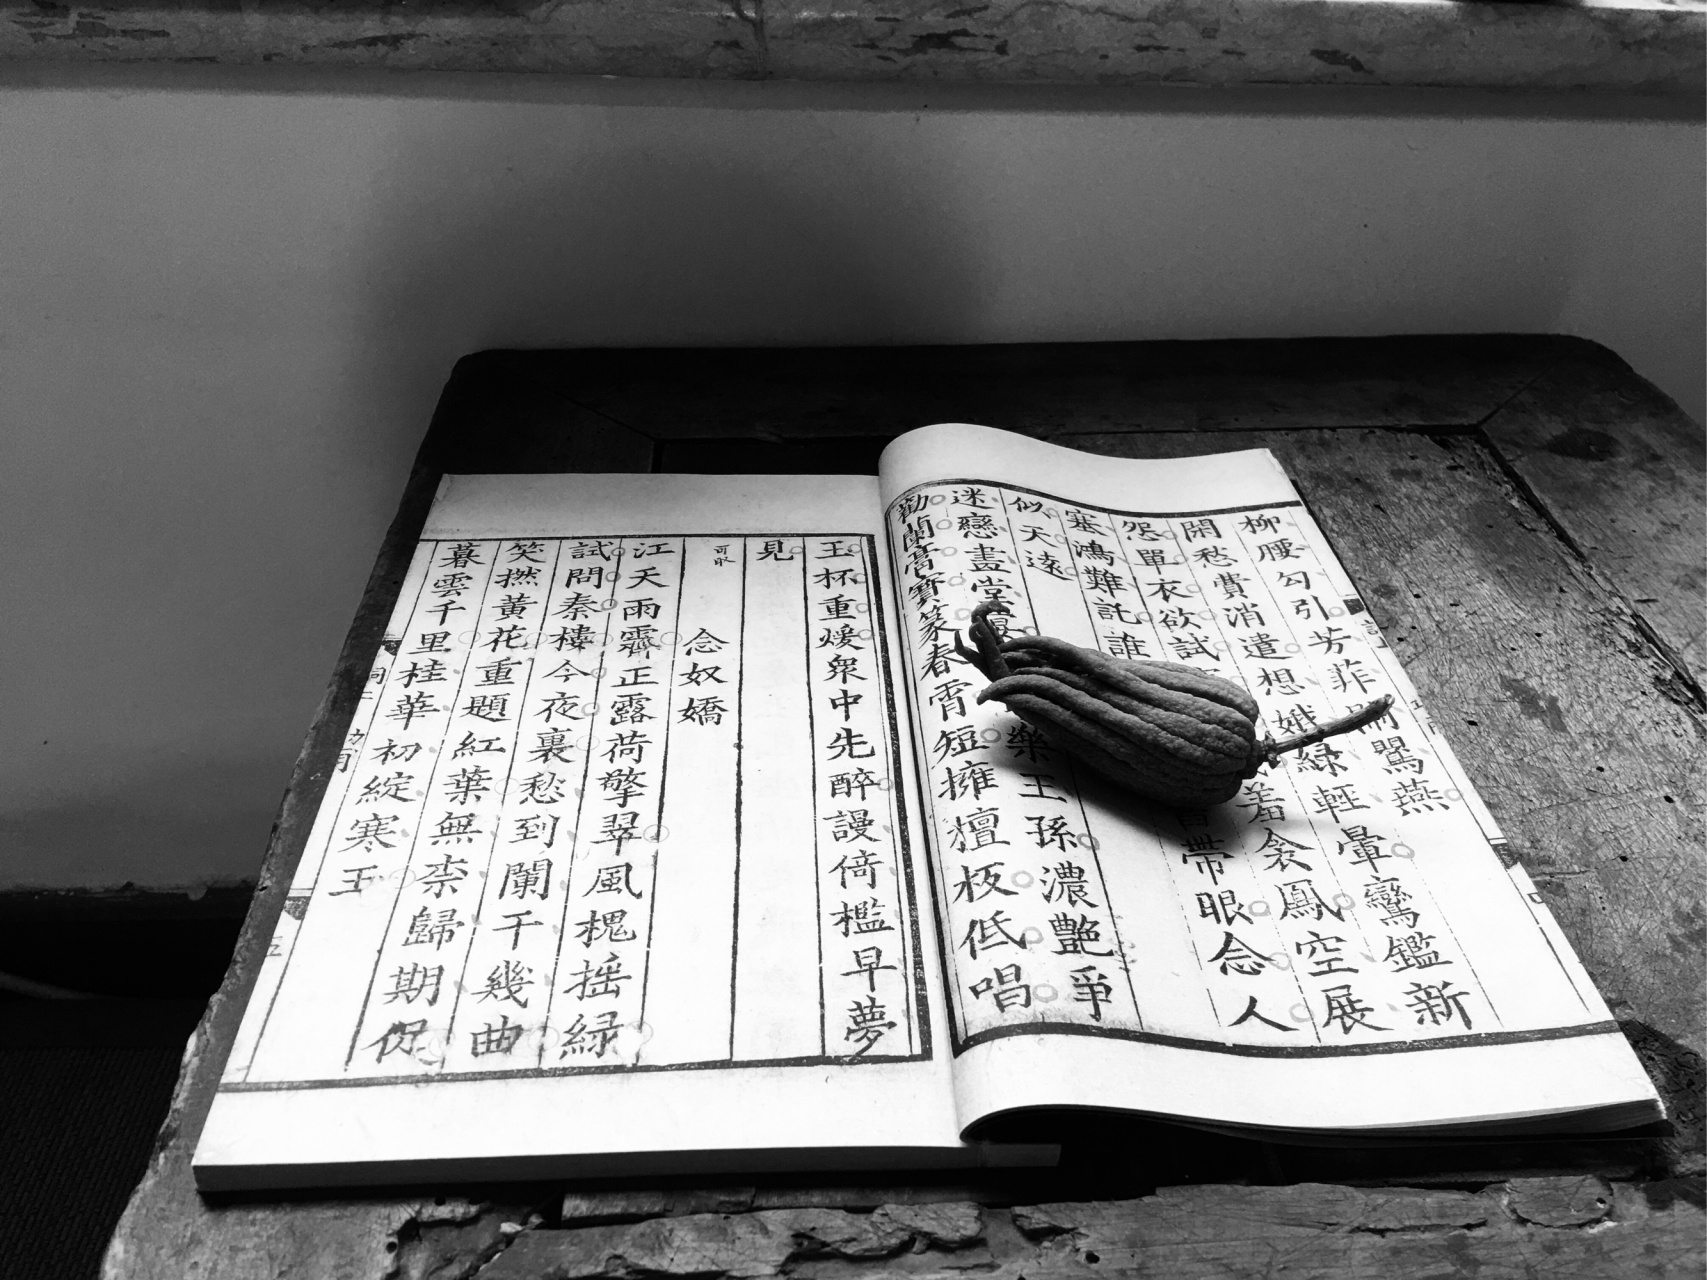 柳腰勾引芳菲鶯燕
新
閑愁費消遣想娥綠輕暈鸞鑑
怨單衣欲試羞衾鳳空展
寒鴻難託誰帶眼念人
似天遠
迷戀畫堂樂王孫濃艷爭
勸蘭膏寶篆春宵短擁檀板低唱
玉杯重煖衆中先醉謾倚檻早夢
見
可取
念奴嬌
江天雨霽正露荷擎翠風槐揺緑
試問秦樓今夜裏愁到闌干幾曲
笑撚黃花重題紅葉無柰歸期促
暮雲千里桂華初綻寒玉